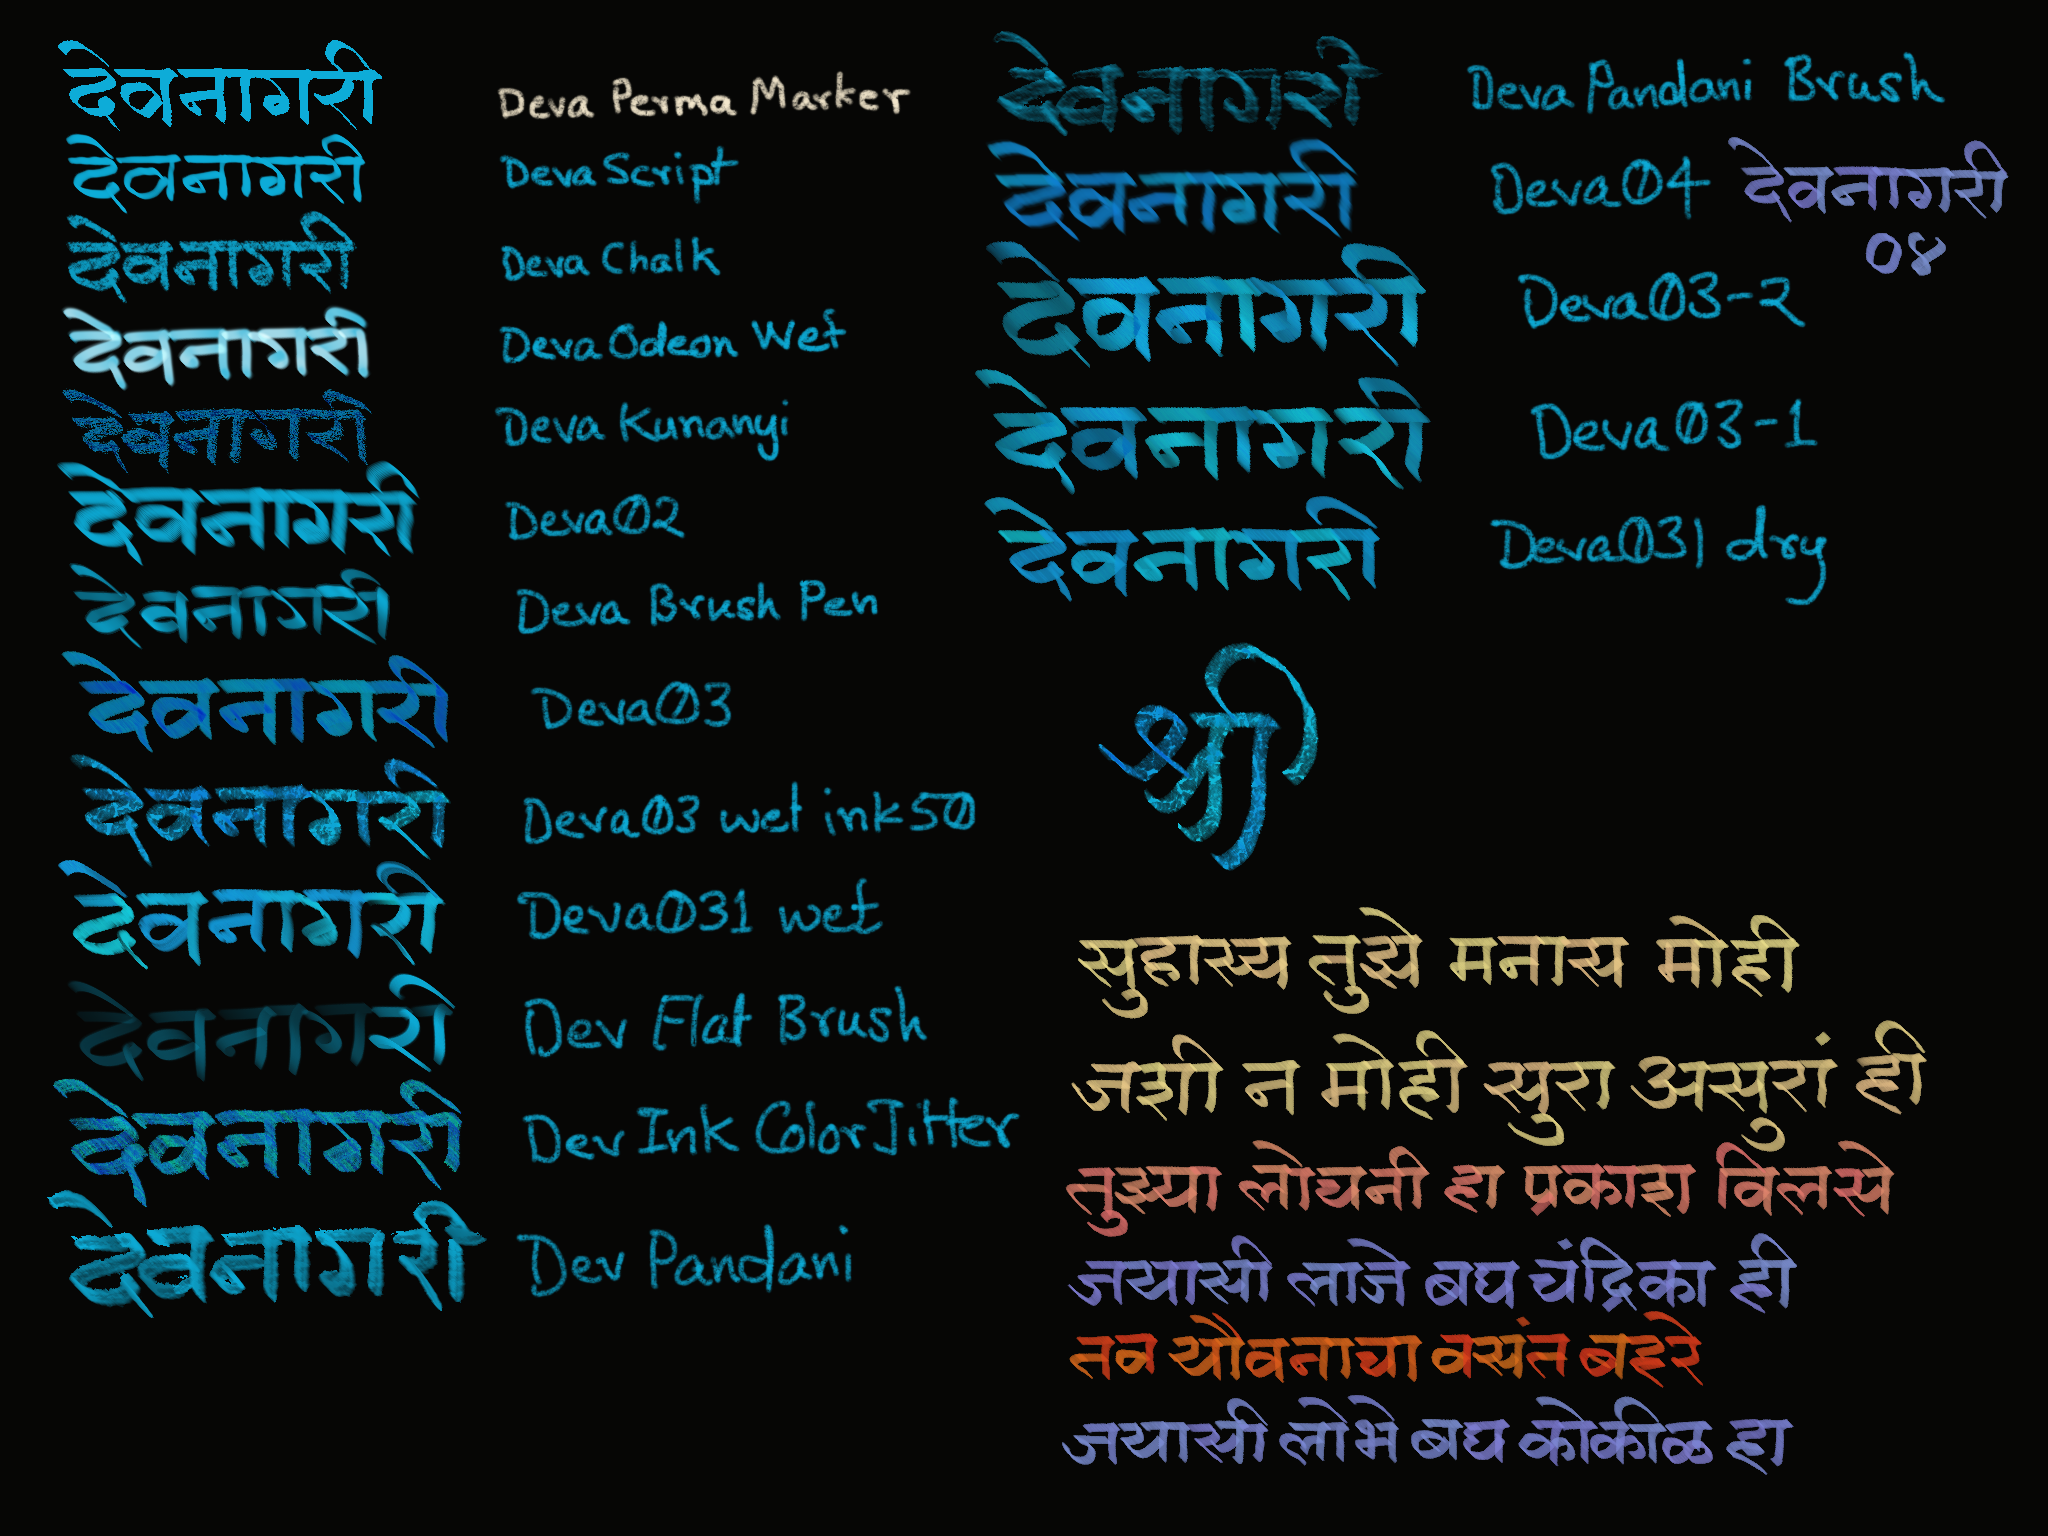 देवनागरी Deva Perma Marker
देवनागरी Deva Script
देवनागरी Deva Chalk
देवनागरी Deva Odeon Wet
देवनागरी Deva Kunanyi
देवनागरी Deva02
देवनागरी Deva Brush Pen
देवनागरी Deva03
देवनागरी Deva03 wet ink50
देवनागरी Deva031 wet
देवनागरी Dev Flat Brush
देवनागरी Dev Ink ColorJitter
देवनागरी Dev Pandani
देवनागरी Deva Pandani Brush
देवनागरी Deva04 देवनागरी
०४
देवनागरी Deva03-2
देवनागरी Deva03-1
देवनागरी Deva031 dry
श्री
सुहास्य तुझे मनास मोही
जशी न मोही सुरा असुरां ही
तुझ्या लोचनी हा प्रकाश विलसे
जयासी लाजे बघ चंद्रिका ही
नव यौवनाचा वसंत बहरे
जयासी लोभे बघ कोकीळ हा